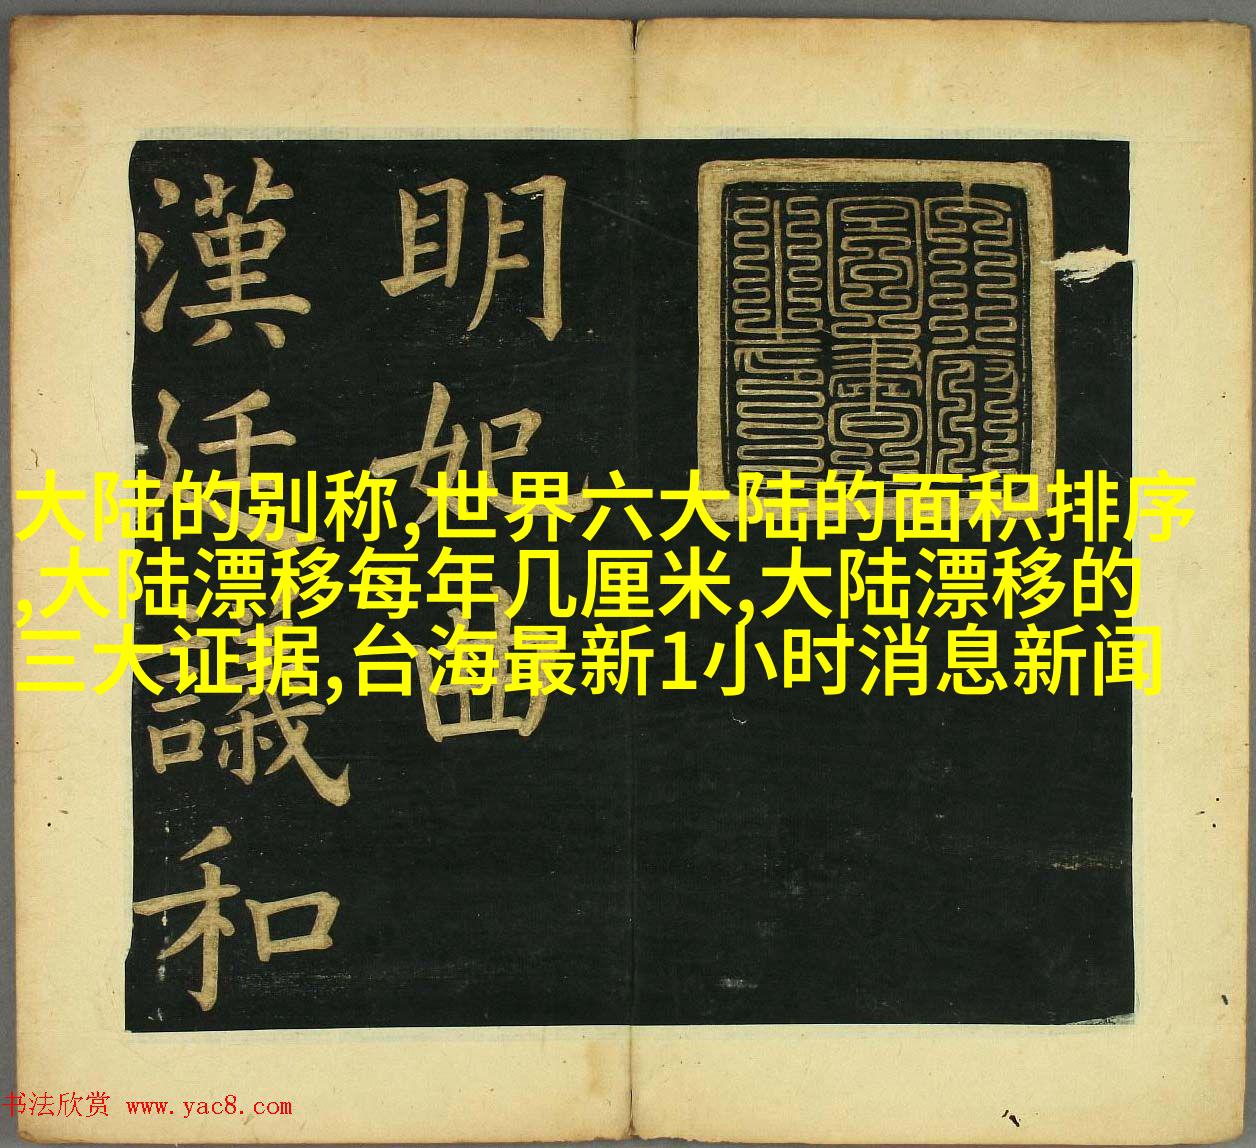 明妃曲
漢廷議和
大陆的别称,世界六大陆的面积排序
,大陆漂移每年几厘米,大陆漂移的
三大证据,台海最新1小时消息新闻
书法欣赏 www.yac8.com